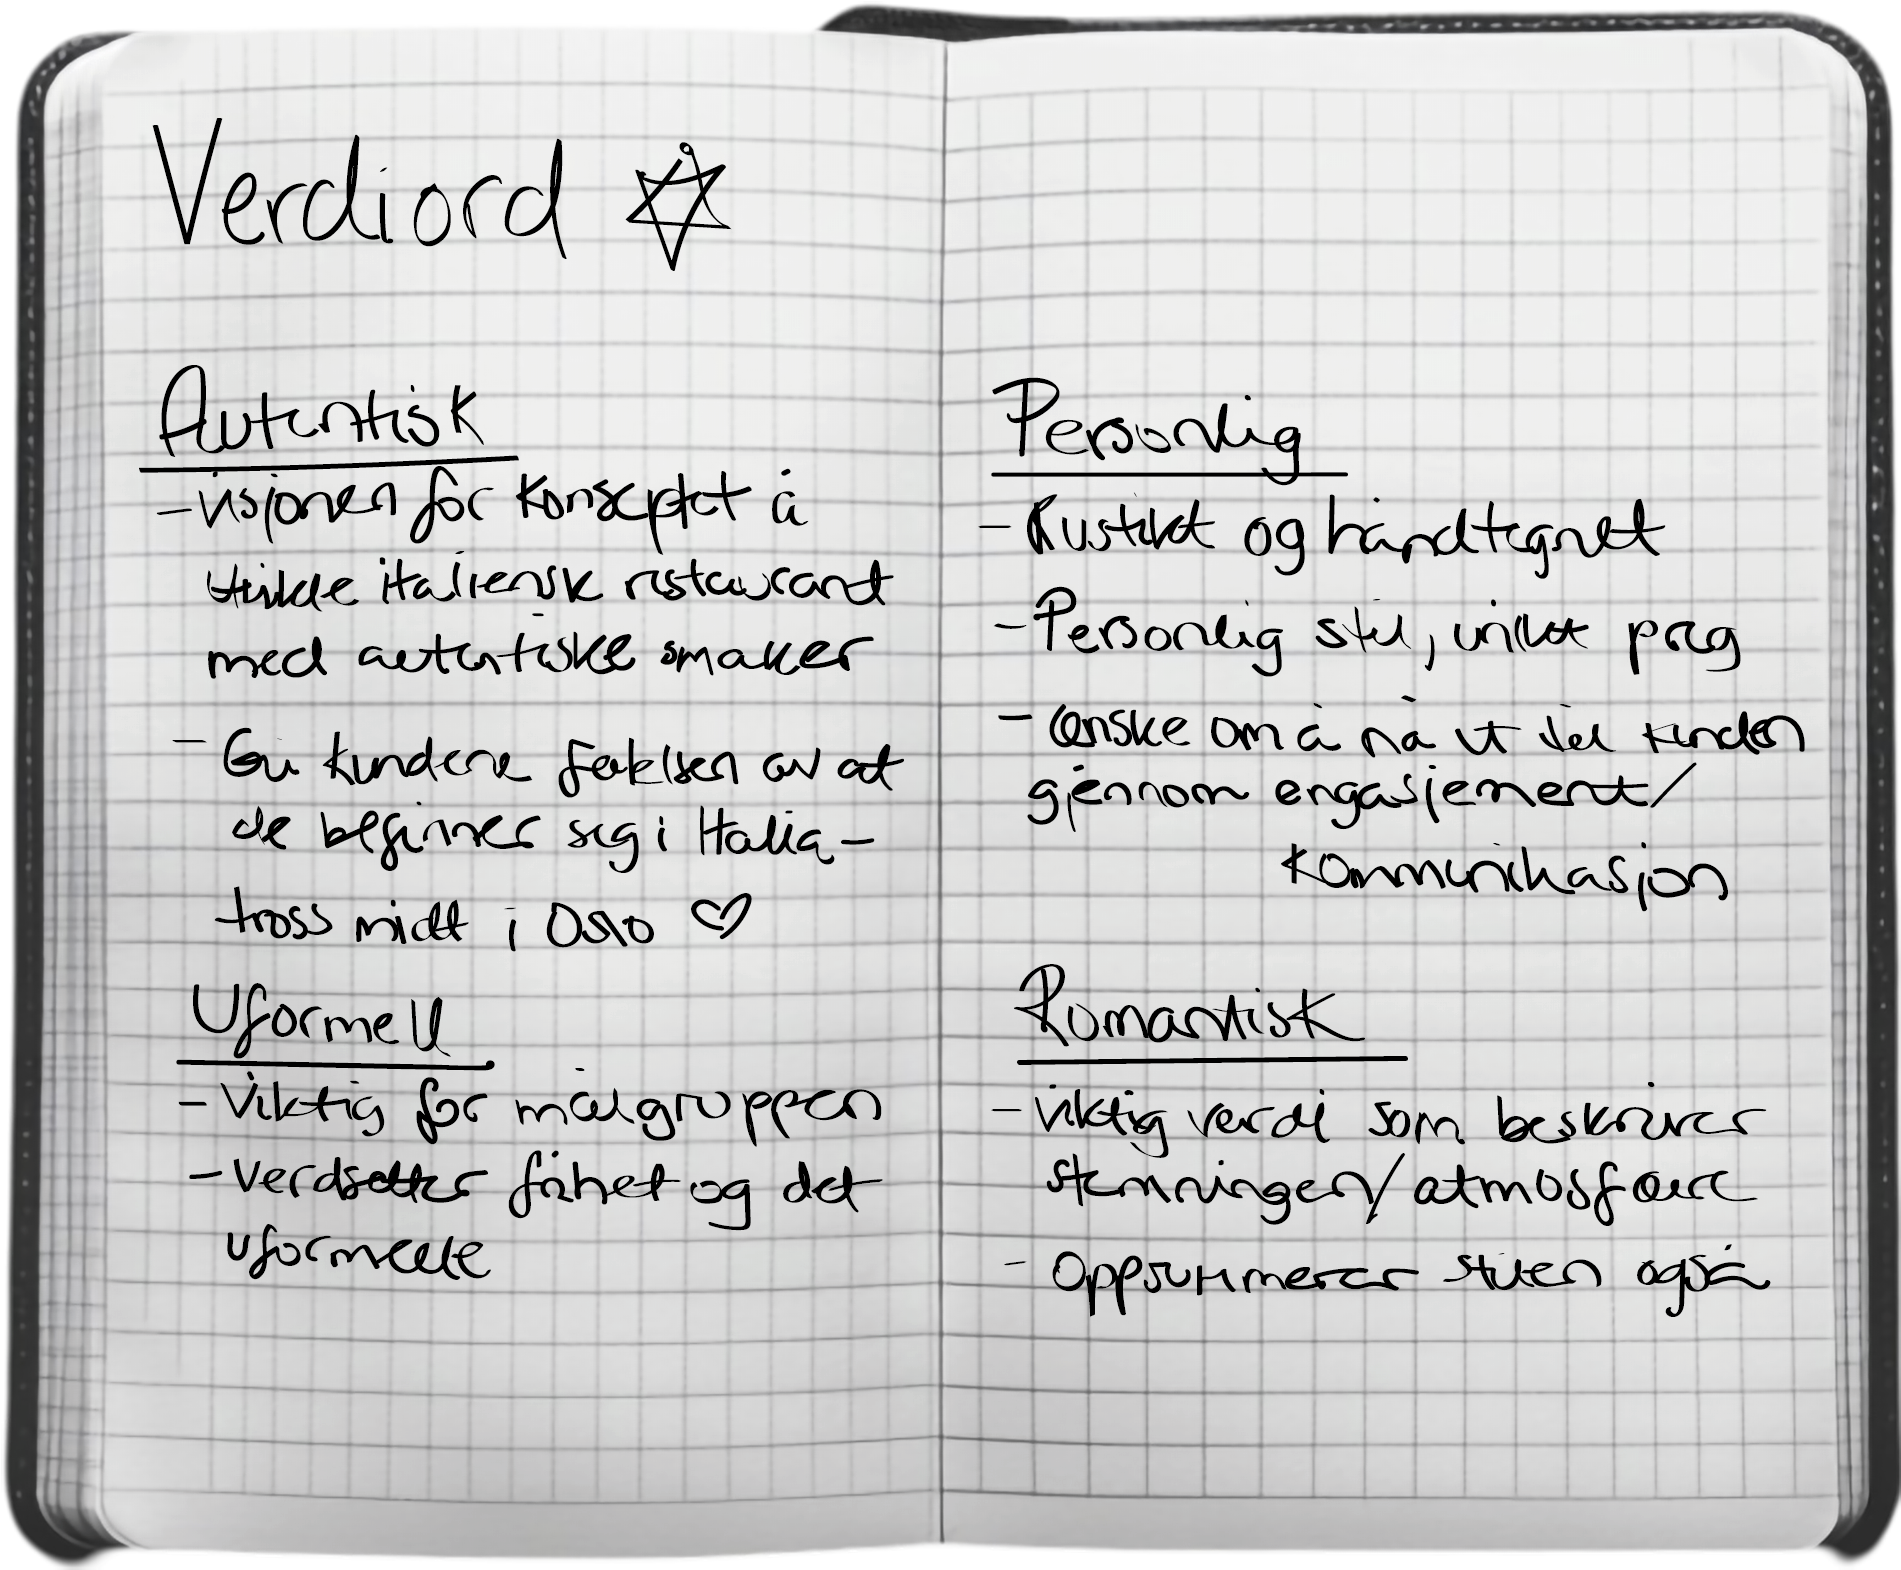 Verdiord
Autentisk
- visjonen for konseptet å
utvikle italiensk restaurant
med autentiske smaker
- Gi kundene følelsen av at
de befinner seg i Italia -
tross midt i Oslo ♡
Uformell
- Viktig for målgruppen
- Verdsetter frihet og det
uformelle
Personlig
- Rustikt og håndtegnet
- Personlig stil, unikt preg
- Ønske om å nå ut til kunden
gjennom engasjement/
kommunikasjon
Romantisk
- viktig verdi som beskriver
stemningen/atmosfære
- Oppsummerer stilen også